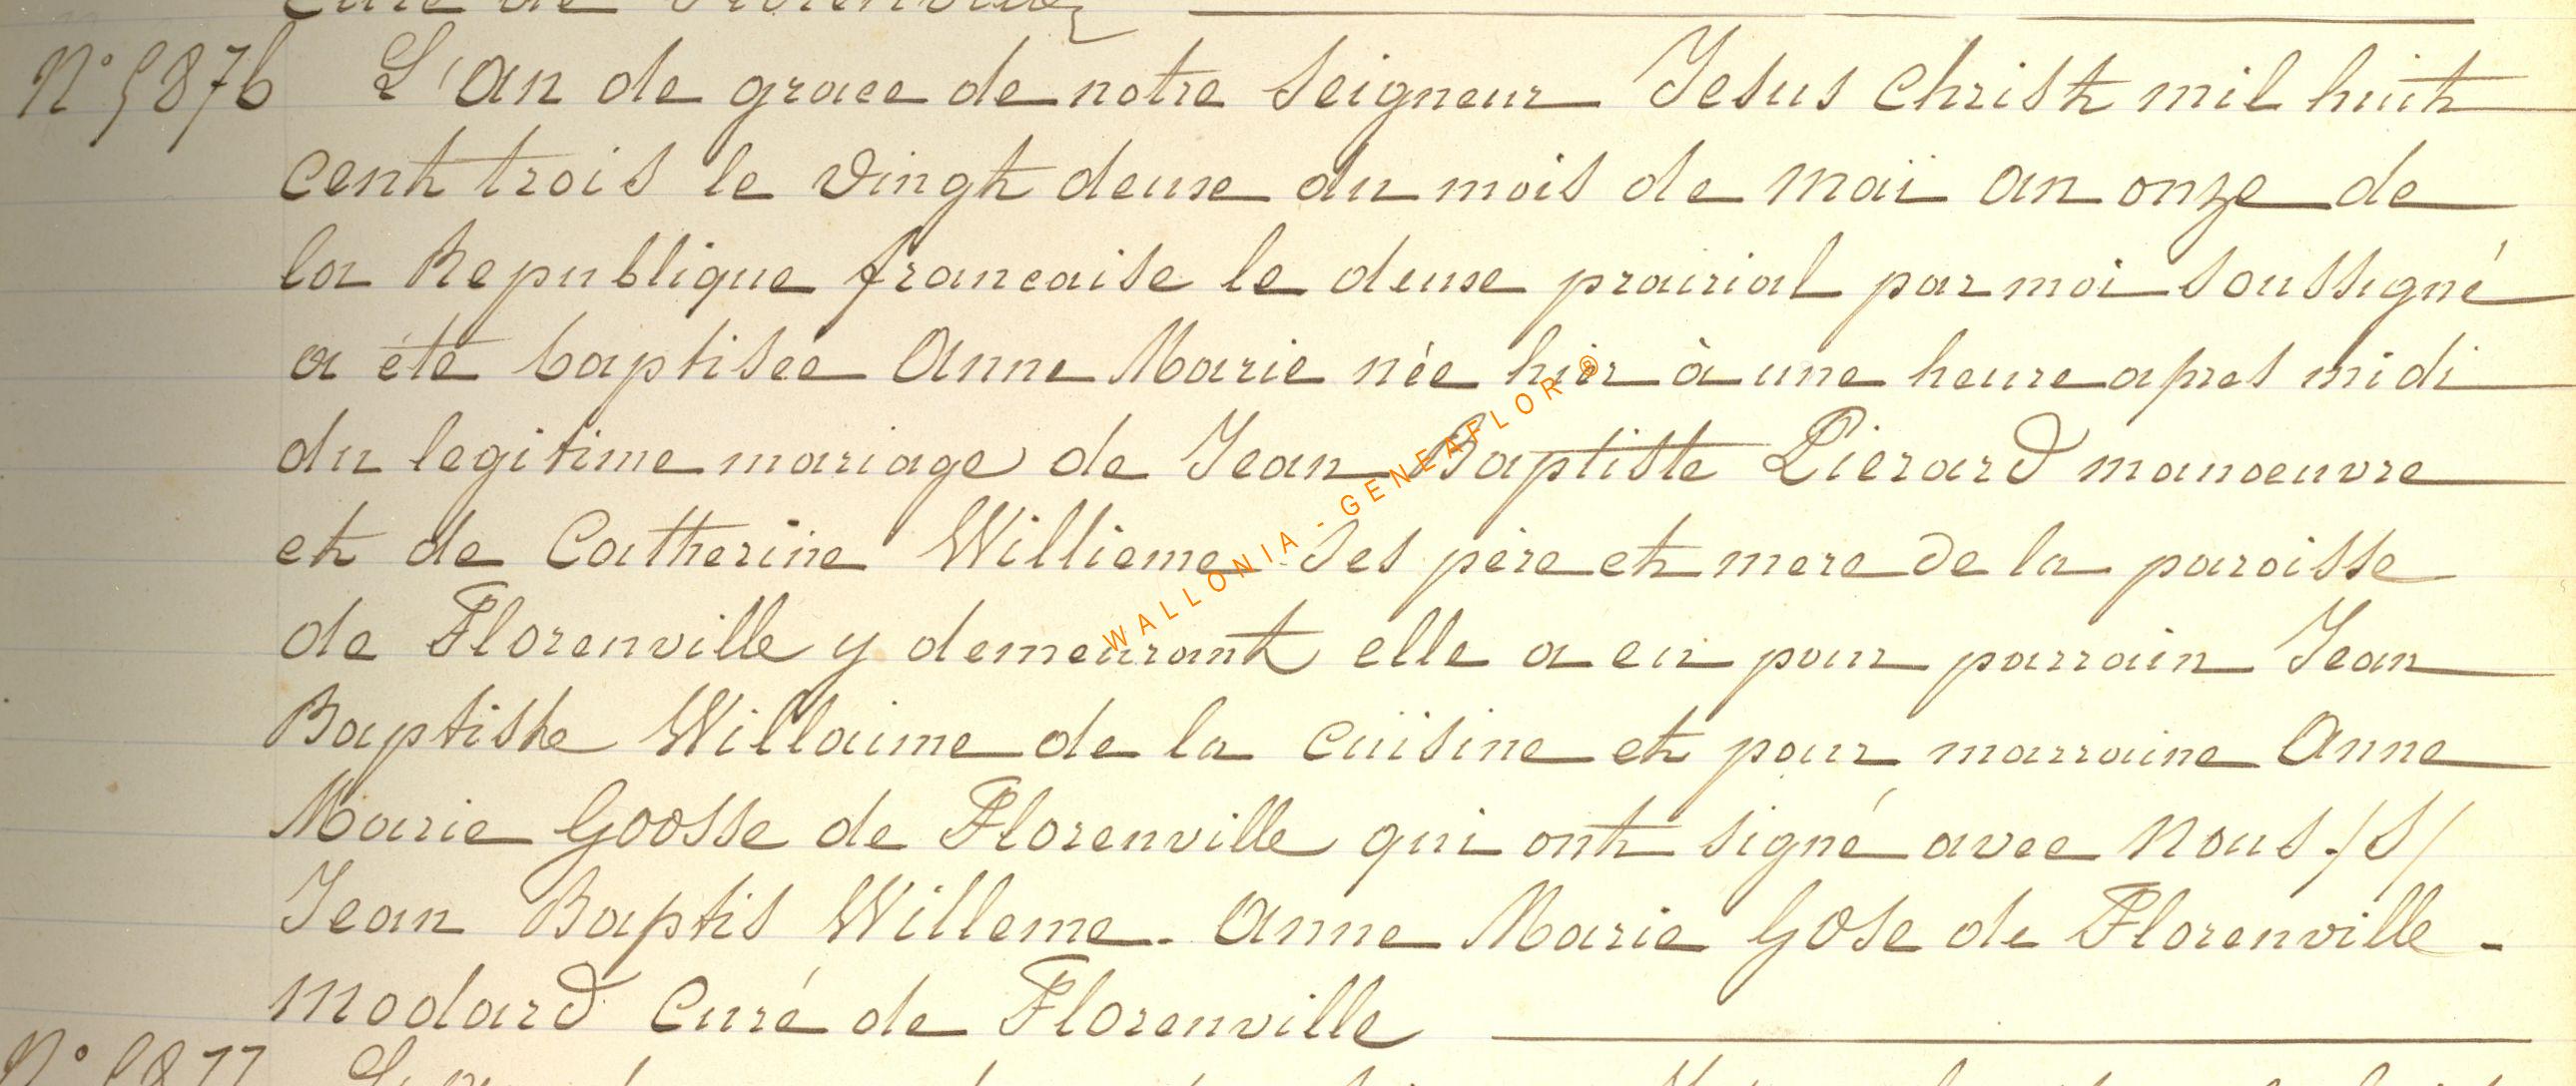 Curé de Florenville
N° 5876 L'an de grace de notre Seigneur Jesus Christ mil huit
cent trois le vingt deuxe du mois de maï an onze de
la Republique francaise le deuxe prairial par moi soussigné
a été baptisée Anne Marie née hier à une heure apres midi
du legitime mariage de Jean Baptiste Pierard manoeuvre
et de Catherine Willieme Ses père et mere de la paroisse
de Florenville y demeurant elle a eu pour parrain Jean
Baptiste Willaime de la cuisine et pour marraine Anne
Marie Goosse de Florenville qui ont signé avec nous /S/
Jean Baptis Willeme. Anne Marie Gose de Florenville -
Modard Curé de Florenville
N° 5877
WALLONIA - GENEAFLOR ®